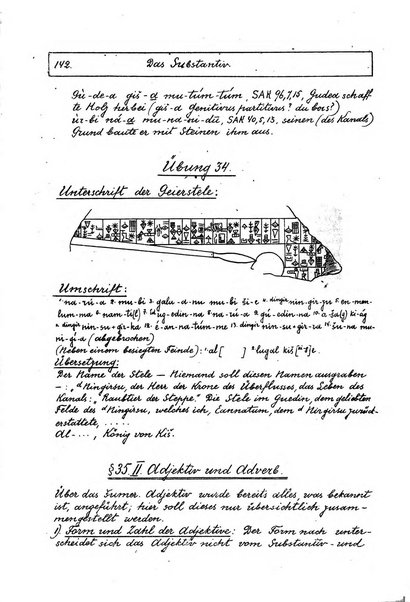 142. Das Substantiv.
Gù-de-a giš-a mu-túm-túm, SAK 96,7,15, Gudea schaff
te Holz herbei (giš-a Genitivus partitivus? du bois?)
úr-bi ná-a mu-na-ni-dù, SAK 40,5,13, seinen (des Kanals)
Grund baute er mit Steinen ihm aus.
Übung 34.
Unterschrift der Geierstele:
Umschrift:
na-rú-a mu-bi galu-a-nu mu-bi ši-e dingir nin-gir-su en-men-
lum-ma nam-til edin-na na-rú-a gú-edin-na a-šag ki-ág
dingir nin-su-gir-ka é-an-na-túm-me dingir nin-su-gir-ra šu-na mu-
ni-gi-a (abgebrochen)
(Neben einem besiegten Feinde): al[ ] lugal kiš
Übersetzung:
Der Name der Stele — Niemand soll diesen Namen ausgraben
—: "d Ningirsu, der Herr der Krone des Überflusses, das Leben des
Kanals: "Raubtier der Steppe." Die Stele im Guedin, dem geliebten
Felde des d Ningirsu, welches ich, Eannatum, dem d Ningirsu zurück-
erstattete, .....
Al-..., König von Kiš.
§35 II Adjektiv und Adverb.
Über das sumer. Adjektiv wurde bereits alles, was bekannt
ist, angeführt; hier soll dieses nur übersichtlich zusam-
mengestellt werden.
1) Form und Zahl der Adjektive: Der Form nach unter-
scheidet sich das Adjektiv nicht vom Substantiv- und